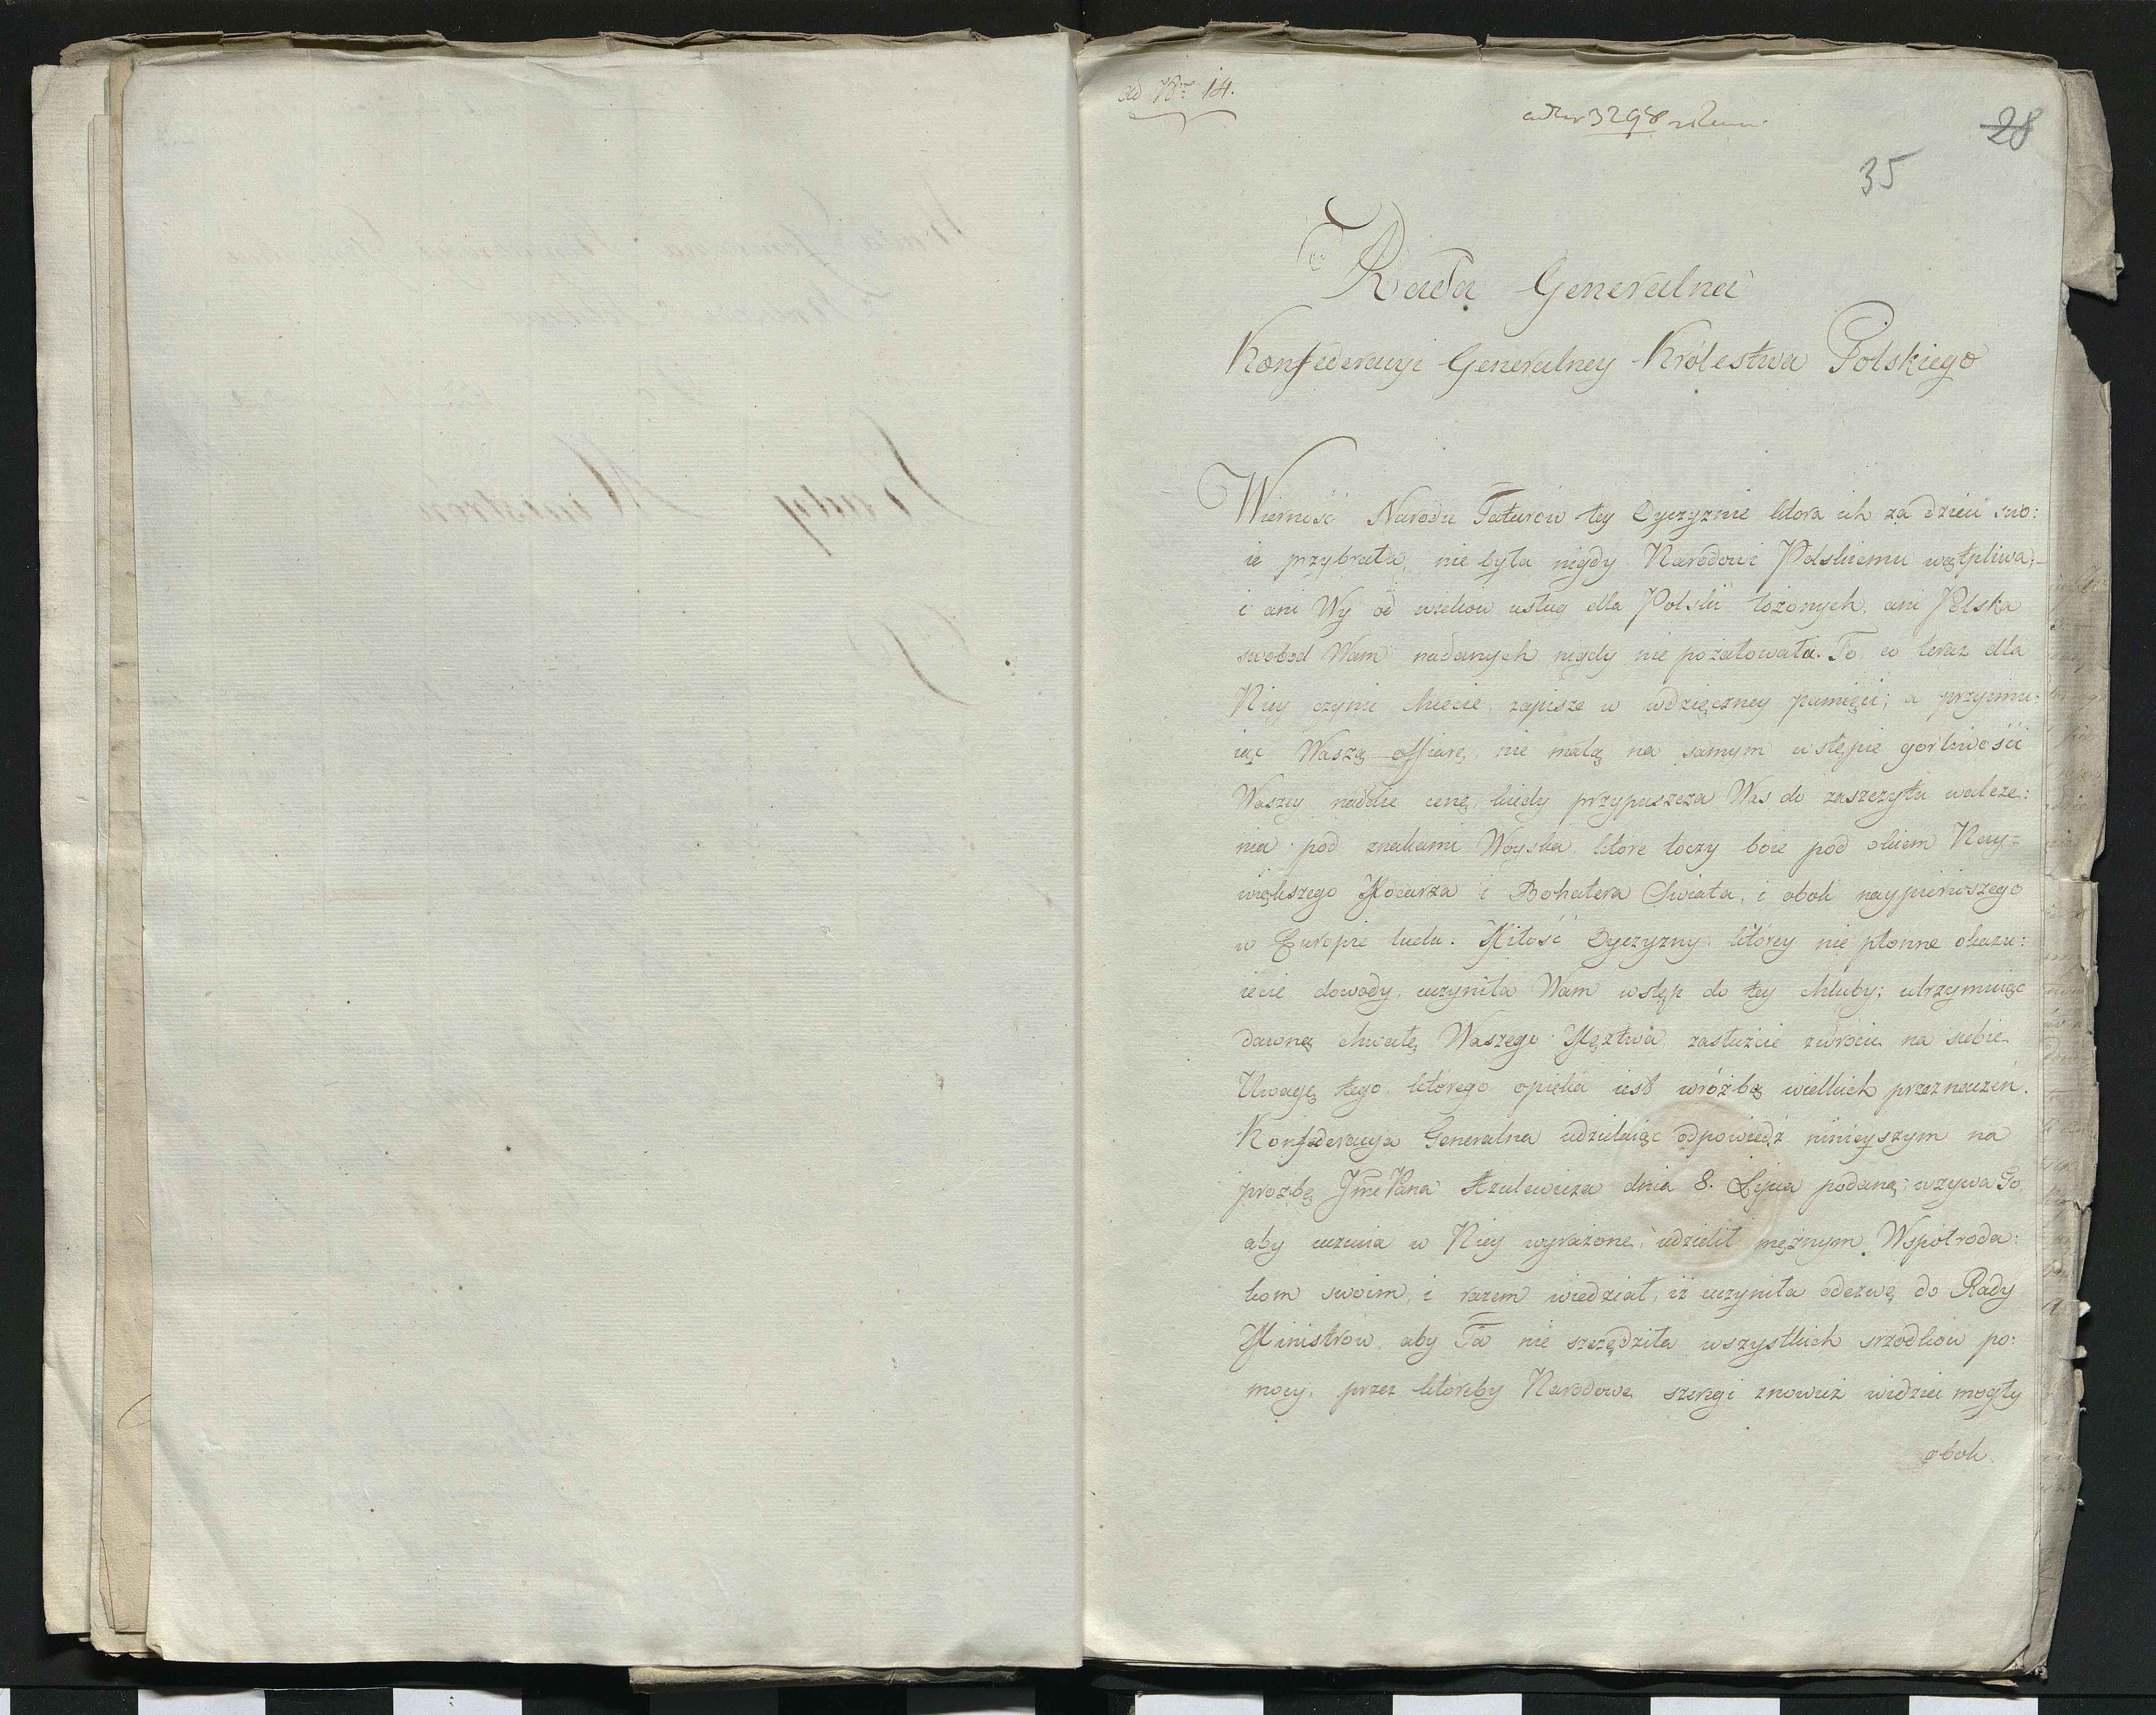 ad Nr 14.
3298
28
35
Rada Generalna
Konfederacyi Generalney Królestwa Polskiego
Wierność Narodu Tatarów tey Oyczyznie która ich za dzieci swo:
ie przybrała, nie była nigdy Narodowi Polskiemu wątpliwa;
i ani Wy od wieków usług dla Polski łożonych, ani Polska
swobod Wam nadanych nigdy nie pożałowała. To, co teraz dla
Niey czynić chcecie, zapisze w wdzięczney pamięci; a przyimu:
iąc Waszą offiarę, nie małą na samym wstępie gorliwości
Waszey nadaie cenę, kiedy przypuszcza Was do zaszczytu walcze:
nia pod znakami Woyska, które toczy boie pod okiem Nay=
większego Mocarza i Bohatera Swiata, i obok naypierwszego
w Europie ludu. Miłość Oyczyzny, którey nie płonne okazu:
iecie dowody, uczyniła Wam wstęp do tey chluby; utrzymuiąc
dawną chwałę Waszego Męztwa, zasłużcie zwrócić na siebie
Uwagę tego, którego opieka iest wróżbą wielkich przeznaczeń.
Konfederacya Generalna udzielaiąc odpowiedź ninieyszym na
prozbę Jmć Pana Azulewicza dnia 8. Lipca podaną, wzywa Go,
aby uczucia w Niey wyrażone, udzielił mężnym Współroda:
kom swoim, i razem wiedział, iż uczyniła odezwę do Rady
Ministrów, aby Ta nie szczędziła wszystkich srzodków po:
mocy, przez któreby Narodowe szeregi znowuż widzieć mogły
obok